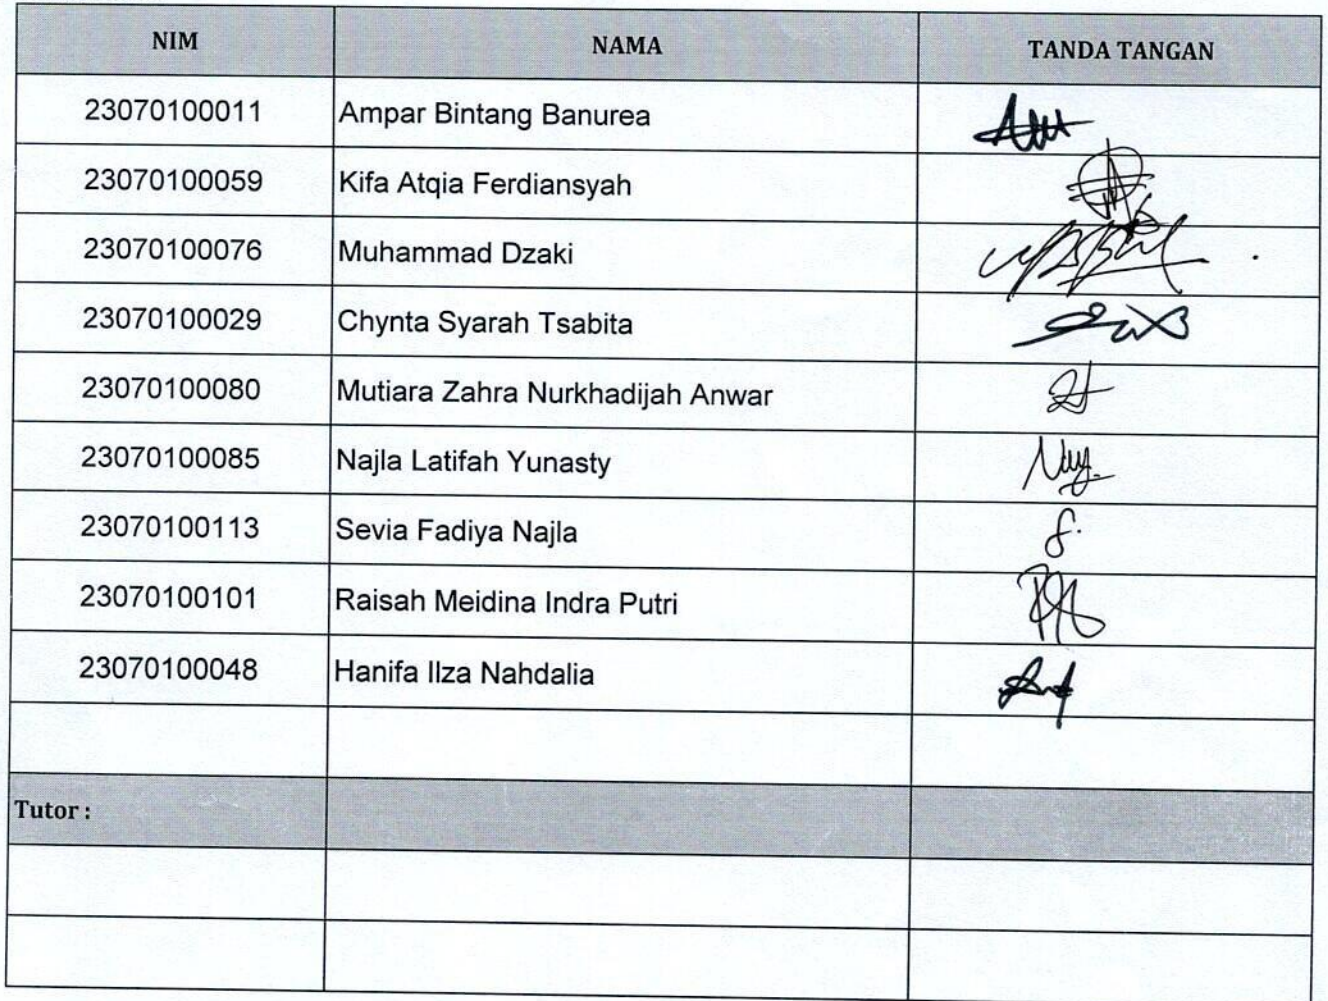 NIM NAMA TANDA TANGAN
23070100011 Ampar Bintang Banurea
23070100059 Kifa Atqia Ferdiansyah
23070100076 Muhammad Dzaki
23070100029 Chynta Syarah Tsabita
23070100080 Mutiara Zahra Nurkhadijah Anwar
23070100085 Najla Latifah Yunasty
23070100113 Sevia Fadiya Najla
23070100101 Raisah Meidina Indra Putri
23070100048 Hanifa Ilza Nahdalia
Tutor :